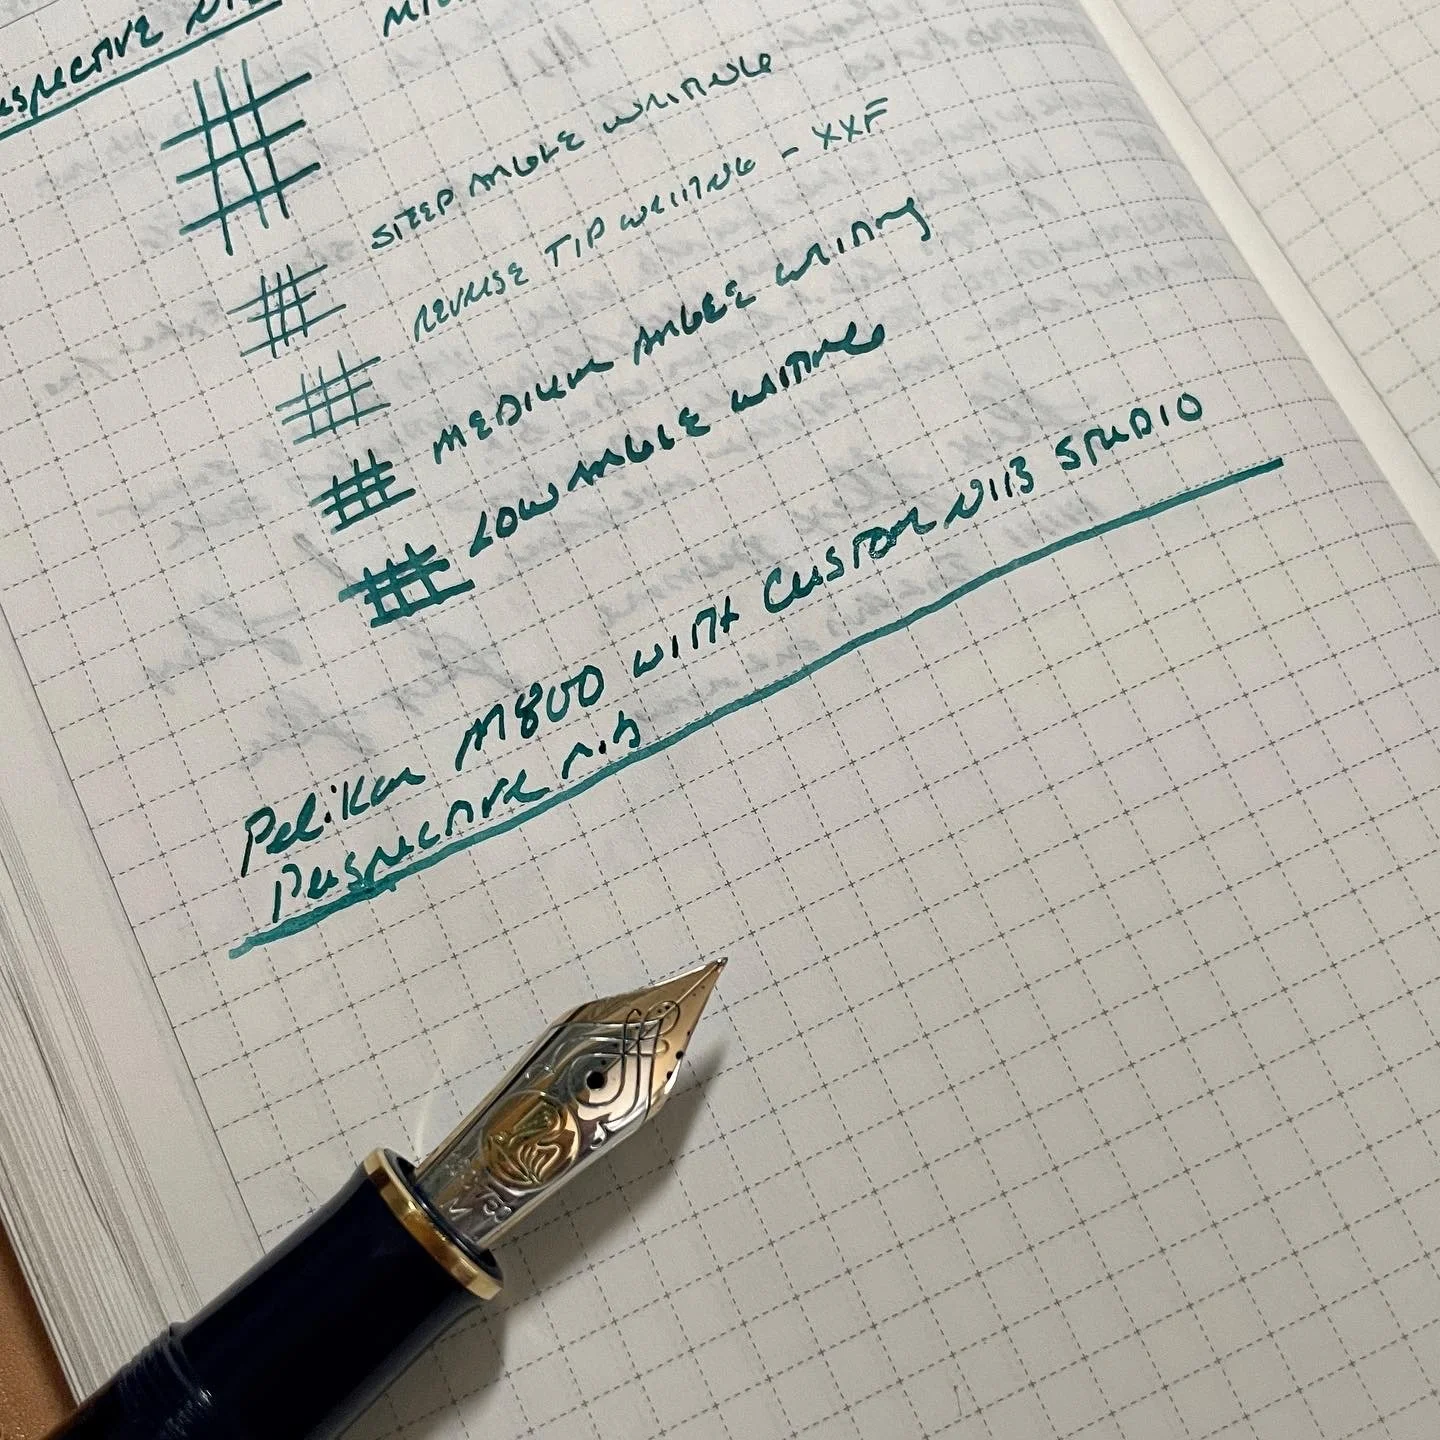 STEEP ANGLE WRITING
REVERSE TIP WRITING - XXF
MEDIUM ANGLE WRITING
LOW ANGLE WRITING
Pelikan M800 WITH CUSTOM NIB STUDIO
PERSPECTIVE nib